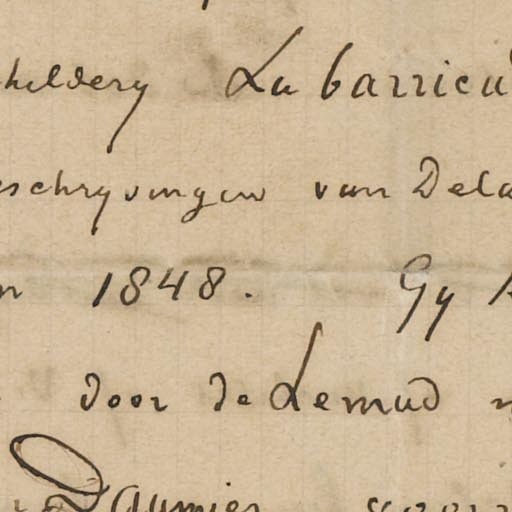 hildery La barrica
eschryvingen van Dela
n 1848. Gy k
door de Lemud
Daumier